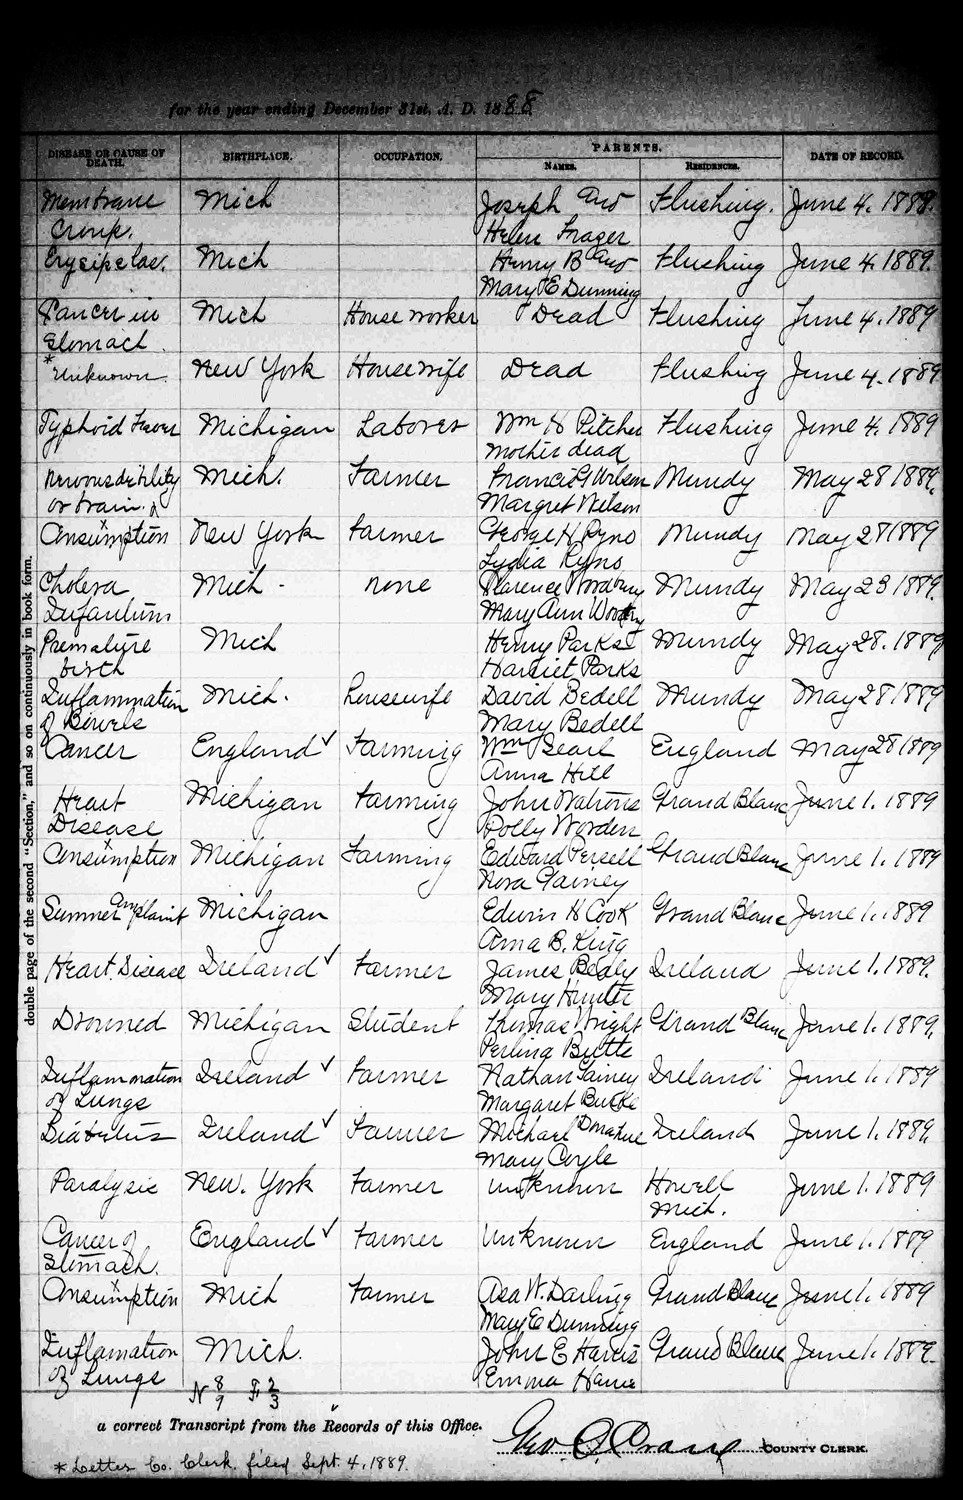 for the year ending December 31st, A. D. 1888
DISEASE OR CAUSE OF DEATH. BIRTHPLACE. OCCUPATION. PARENTS. DATE OF RECORD.
NAMES. RESIDENCES.
Membrane Mich Joseph and Flushing. June 4. 1889.
Croup. Helen Frazer
Erysipelas. Mich Henry B and Flushing June 4. 1889.
Mary E Dunning
Cancer in Mich House worker Dead Flushing June 4. 1889
Stomach
*Unknown. New York Housewife Dead Flushing June 4. 1889
Typhoid Fever Michigan Laborer Wm H Pitcher Flushing June 4. 1889
Mother dead
Nervous debility Mich. Farmer Francis Wilson Mundy May 28 1889.
or brain. Margret Wilson
Consumption New York Farmer George H Ryno Mundy May 28 1889
Lydia Ryno
Cholera Mich - none Clarence Woodbury Mundy May 23 1889
Infantum Mary Ann
Premature Mich Henry Parks Mundy May 28. 1889
birth Harriet Parks
Inflammation Mich. housewife David Bedell Mundy May 28 1889
of Bowels Mary Bedell
Cancer England ✓ Farming Wm England May 28 1889
Anna Hill
Heart Michigan Farming John Grand Blanc June 1. 1889
Disease Polly Worden
Consumption Michigan Farming Edward Persell Grand Blanc June 1. 1889
Nora Gainey
Summer Complaint Michigan Edwin H Cook Grand Blanc June 1. 1889
Anna B. King
Heart. Disease Ireland ✓ Farmer James Ireland June 1. 1889.
Mary Hunter
Drowned Michigan Student Thomas Wright Grand Blanc June 1. 1889.
Butts
Inflammation Ireland ✓ Farmer Nathan Gainey Ireland June 1. 1889
of Lungs Margaret Burke
Diabetus Ireland ✓ Farmer Michael Donahue Ireland June 1. 1889.
Mary Coyle
Paralysis New. York Farmer Unknown Howell June 1. 1889
Mich.
Cancer of England ✓ Farmer Unknown England June 1. 1889
Stomach.
Consumption Mich Farmer Asa W. Darling Grand Blanc June 1. 1889
Mary E Dunning
Inflamation Mich. John E Harris Grand Blanc June 1. 1889.
of Lungs Emma
N 8/9 F 2/3
a correct Transcript from the Records of this Office.
Geo. COUNTY CLERK.
* Letter Co. Clerk. filed Sept. 4, 1889.
double page of the second "Section," and so on continuously in book form.